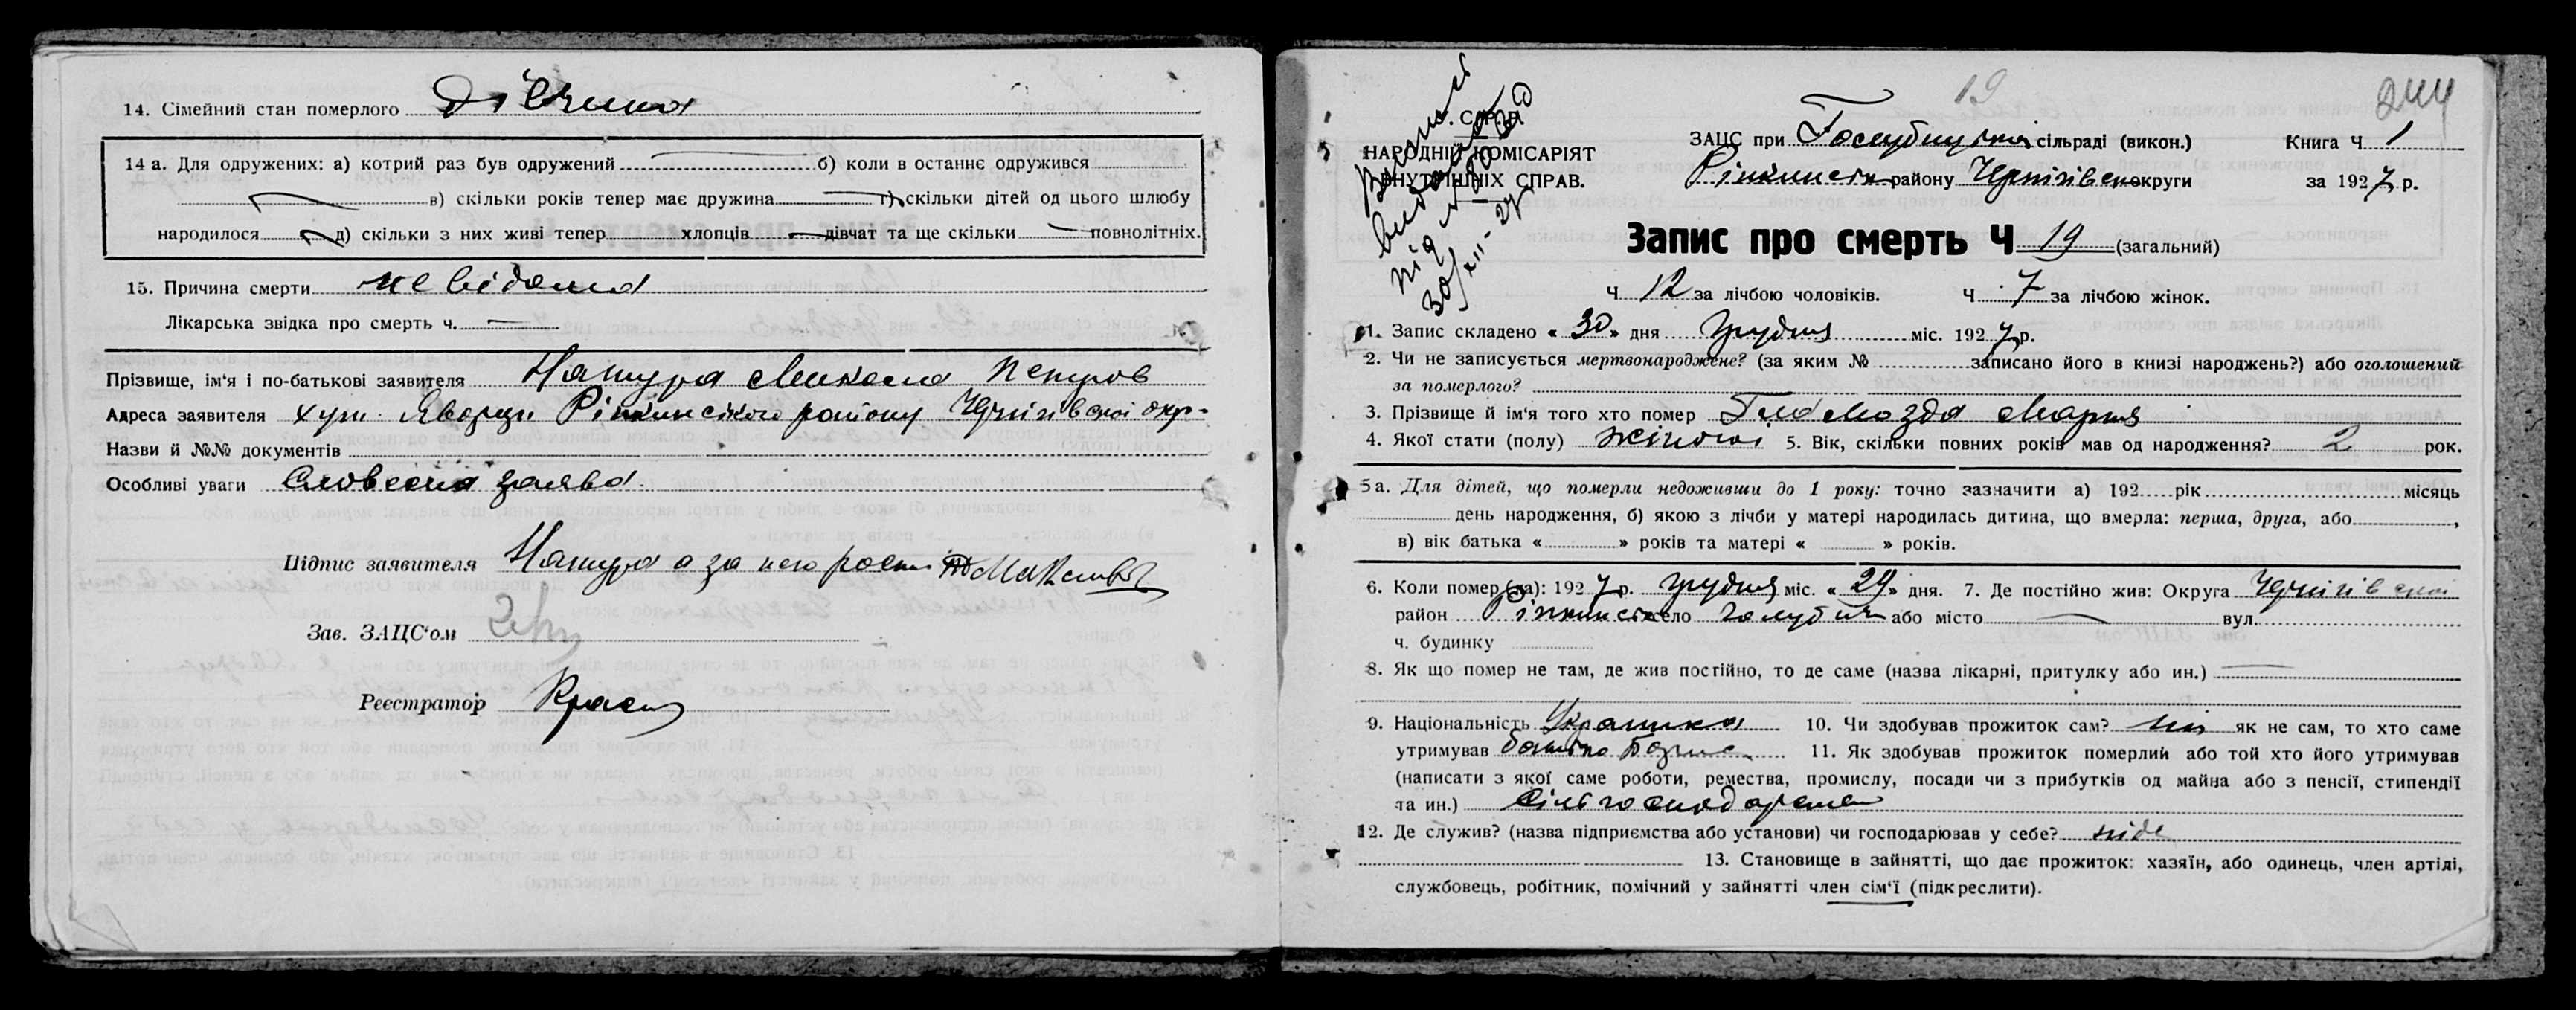 14. Сімейний стан померлого дівчина
14 а. Для одружених: а) котрий раз був одружений б) коли в останнє одружився
в) скільки років тепер має дружина г) скільки дітей од цього шлюбу
народилося д) скільки з них живі тепер хлопців дівчат та ще скільки повнолітніх.
15. Причина смерти невідома
Лікарська звідка про смерть ч.
Прізвище, ім'я і по-батькові заявителя Нашура Микола Петров
Адреса заявителя хут. Яворци Ріпкинського району Чернігівскої окр.
Назви й №№ документів
Особливі уваги Словесна заява.
Підпис заявителя Нашура а за него роспи
Зав. ЗАЦС'ом
Реєстратор
19
244
. С.Р.Р.
НАРОДНІЙ КОМІСАРІЯТ
ВНУТРІШНІХ СПРАВ.
30/XII-27
ЗАЦС при Голубицькій сільраді (викон.) Книга Ч 1
Ріпкинськ району Чернігівско округи за 1927 р.
Запис про смерть Ч 19 (загальний)
Ч 12 за лічбою чоловіків. Ч 7 за лічбою жінок.
1. Запис складено « 30 » дня грудня міс. 1927 р.
2. Чи не записується мертвонароджене? (за яким № записано його в книзі народжень?) або оголошений
за померлого?
3. Прізвище й ім'я того хто помер Гламозда Мария
4. Якої стати (полу) жіночої 5. Вік, скільки повних років мав од народження? 2 рок.
5а. Для дітей, що померли недоживши до 1 року: точно зазначити а) 192 рік місяць
день народження, б) якою з лічби у матері народилась дитина, що вмерла: перша, друга, або ,
в) вік батька « » років та матері « » років.
6. Коли помер (ла): 1927 р. грудня міс. « 29 » дня. 7. Де постійно жив: Округа Чернігівскої
район Ріпкинськ село Голубичі або місто вул.
ч. будинку
8. Як що помер не там, де жив постійно, то де саме (назва лікарні, притулку або ин.)
9. Національність Українка 10. Чи здобував прожиток сам? ні як не сам, то хто саме
утримував батько Борис 11. Як здобував прожиток померлий або той хто його утримував
(написати з якої саме роботи, ремества, промислу, посади чи з прибутків од майна або з пенсії, стипендії
та ин.) сільгосподарства
12. Де служив? (назва підприємства або установи) чи господарював у себе? ніде
13. Становище в зайнятті, що дає прожиток: хазяїн, або одинець, член артілі,
службовець, робітник, помічний у зайнятті член сім'ї (підкреслити).